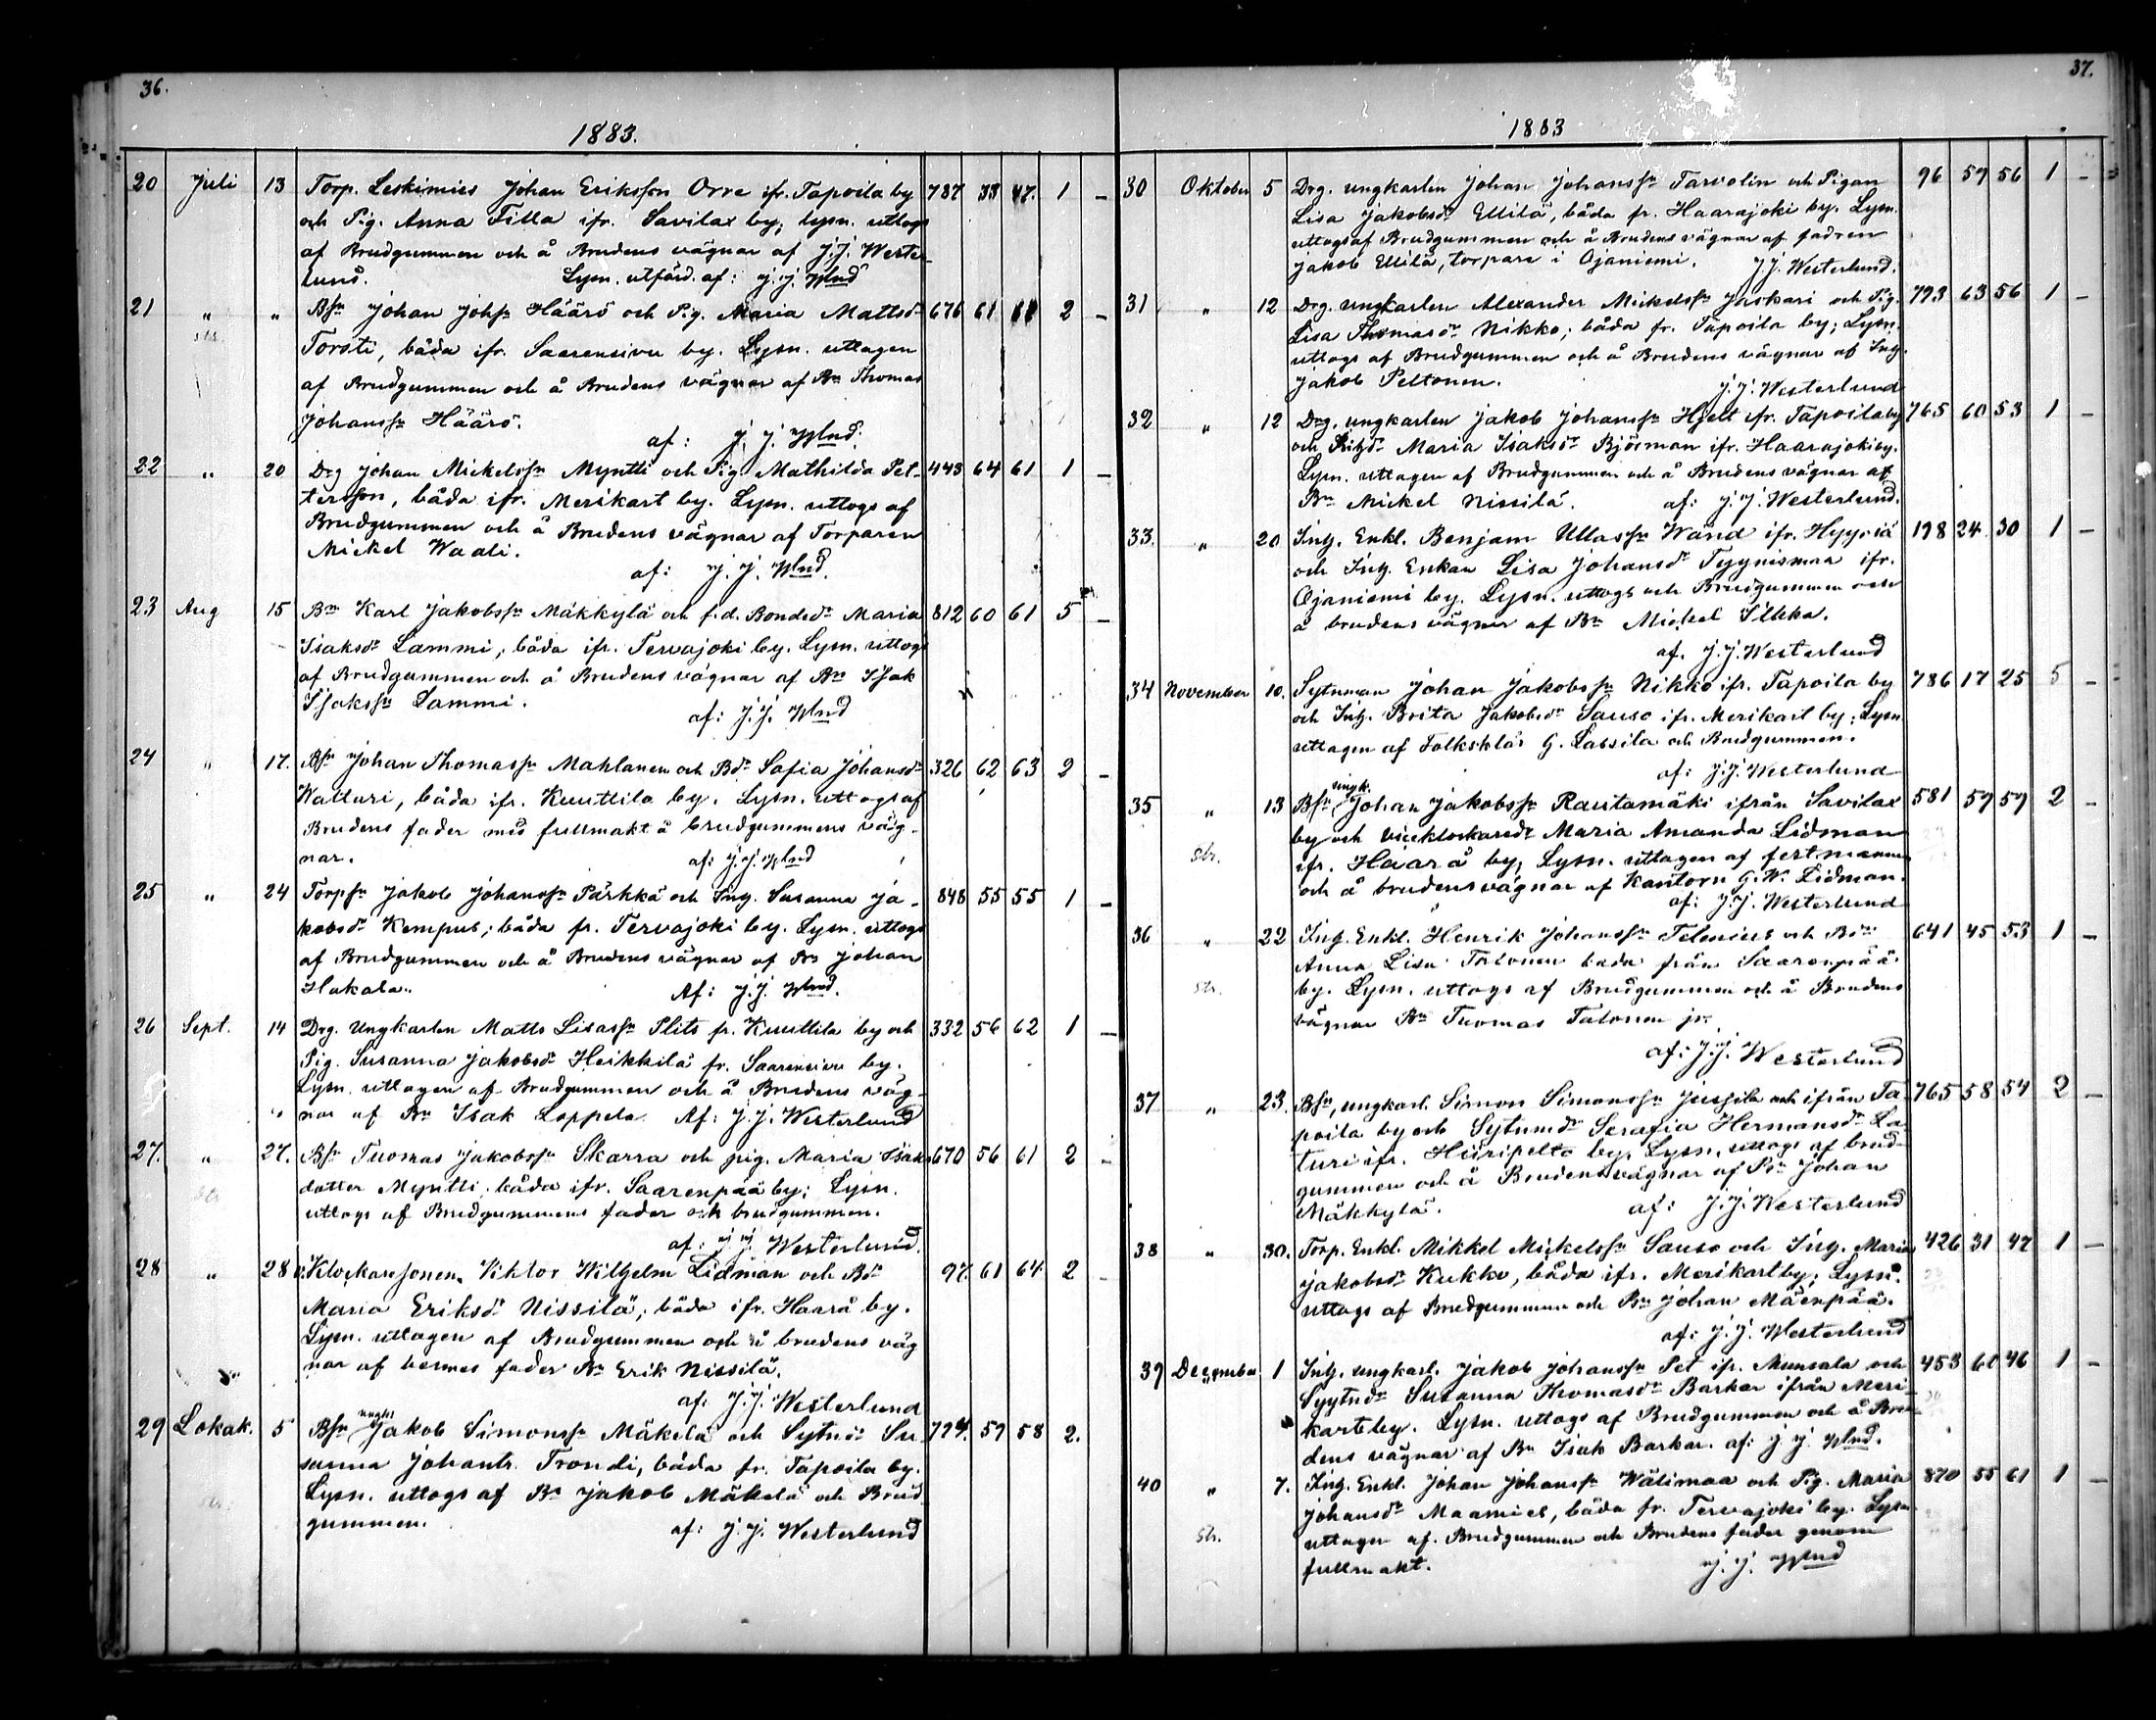 36.
1883.
20 Juli 13 Torp. Leskimies Johan Eriksson Orre ifr. Tapoila by 787 33 47. 1 –
och Pig. Anna Filla ifr. Savilax by; lysn. uttogs
af Brudgummen och å Brudens vägnar af J. J. Wester-
lund. Lysn. utfärd. af: J. J. Wlnd
21 " " Bsn Johan Johsn Häärö och Pig. Maria Mattsdr 676 61 61 2 –
str. Torsti, båda ifr. Saarensivu by. Lysn. uttagen
af Brudgummen och å Brudens vägnar af Bn Thomas
Johanssn Häärö.
af: J. J. Wlnd.
22 " 20 Drg Johan Mickelssn Myntti och Pig. Mathilda Pet- 443 64 61 1 –
tersson, båda ifr. Merikart by. Lysn. uttogs af
Brudgummen och å Brudens vägnar af Torparen
Mickel Waali.
af: J. J. Wlnd.
23 Aug 15 Bn Karl Jakobssn Mäkkylä och f.d. Bondedr Maria 812 60 61 5 –
Isaksdr Lammi, båda ifr. Tervajoki by. Lysn. uttogs
af Brudgummen och å Brudens vägnar af Bn Isak
Isakssn Lammi.
af: J. J. Wlnd
24 " 17. Bsn Johan Thomassn Mahlanen och Bdr Sofia Johansdr 326 62 63 2 –
Wattari, båda ifr. Kuuttila by. Lysn. uttogs af
Brudens fader med fullmakt å brudgummens väg-
nar. af: J. J. Wlnd
25 " 24 Torpsn Jakob Johanssn Pärkkä och Ing. Susanna Ja- 848 55 55 1 –
kobsdr Kempus; båda fr. Tervajoki by. Lysn. uttogs
af Brudgummen och å Brudens vägnar af Bn Johan
Hakala. Af: J. J. Wlnd.
26 Sept. 14 Drg. Ungkarlen Matts Lisassn Plits fr. Kuuttila by och 332 56 62 1 –
Pig. Susanna Jakobsdr Heikkilä fr. Saarensivu by.
Lysn. uttagen af Brudgummen och å Brudens väg-
nar af Bn Isak Loppela. Af: J. J. Westerlund
27. " 27. Bsn Tuomas Jakobssn Skarra och pig. Maria Isaks 670 56 61 2 –
str dotter Myntti, båda ifr. Saarenpää by; Lysn.
uttogs af Brudgummens fader och brudgummen.
af: J. J. Westerlund.
28 " 28 v. Klockaresonen Viktor Wilhelm Lidman och Bdr 97. 61 64 2 –
Maria Eriksdr Nissilä; båda ifr. Haarå by.
Lysn. uttagen af Brudgummen och å brudens väg
nar af hennes fader Bn Erik Nissilä.
af: J. J. Westerlund
29 Lokak. 5 Bsn ungkl Jakob Simonssn Mäkelä och Sytndr Su- 794. 59 58 2.
sanna Johantr. Trondi, båda fr. Tapoila by.
str. Lysn. uttogs af Bn Jakob Mäkelä och Brud
gummen. af: J. J. Westerlund
37.
1883
30 Oktober 5 Drg. ungkarlen Johan Johanssn Tarvolin och Pigan 96 59 56 1 –
Lisa Jakobsdr Ellilä, båda fr. Haarajoki by. Lysn.
uttogs af Brudgummen och å Brudens vägnar af fadren
Jakob Ellilä, torpare i Ojaniemi. J. J. Westerlund.
31 " 12 Drg. ungkarlen Alexander Mickelssn Juskari och Pig. 793 63 56 1 –
Lisa Thomasdr Nikko; båda fr. Tapoila by; Lysn.
uttogs af Brudgummen och å Brudens vägnar af Ing.
Jakob Peltonen. J. J. Westerlund
32 " 12 Drg. ungkarlen Jakob Johanssn Hjelt ifr. Tapoila by 765 60 53 1 –
och Maria Isaksdr Björman ifr. Haarajoki by.
Lysn. uttagen af Brudgummen och å Brudens vägnar af
Bn Mickel Nissilä. af: J. J. Westerlund.
33. " 20 Ing. Enkl. Benjam Ullassn Wänd ifr. Hyyriä 198 24 30 1 –
och Inh. Enkan Lisa Johansdr Tyynismaa ifr.
Ojaniemi by. Lysn. uttogs och Brudgummen och
å brudens vägnar af Bn Mickel Ilkka.
af. J. J. Westerlund
34 November 10. Sytnman Johan Jakobssn Nikko ifr. Tapoila by 786 17 25 5 –
och Inh. Brita Jakobsdr Sauso ifr. Merikart by; Lysn
uttagen af Folkskl. G. Lassila och Brudgummen.
af: J. J. Westerlund
35 " 13 Bsn ungk. Johan Jakobssn Rautamäki ifrån Savilax 581 59 59 2 –
by och viceklockaredr Maria Amanda Lidman
str. ifr. Haarå by; Lysn. uttagen af festmannen
och å brudens vägnar af Kantorn G. W. Lidman.
af: J. J. Westerlund
36 " 22 Inh. Enkl. Henrik Johanssn Telenius och Bdr 641 45 53 1 –
Anna Lisa Talonen båda från Saarenpää
str. by. Lysn. uttogs af Brudgummen och å Brudens
vägnar Bn Tuomas Talonen jr.
af: J. J. Westerlund
37 " 23. Bsn, ungkarl. Simon Simonssn Jussila och ifrån Ta- 765 58 54 2 –
poila by och Sytnmdr Serafia Hermansdr La-
turi ifr. Hiiripelto by. Lysn. uttogs af brud-
gummen och å Brudens vägnar af Bn Johan
Mäkkylä. af: J. J. Westerlund
38 " 30. Torp. Enkl. Mikkel Mickelssn Sauso och Ing. Maria 426 31 47 1 –
Jakobsdr Kukko, båda ifr. Merikart by; Lysn.
uttogs af Brudgummen och Bn Johan Mäenpää.
af: J. J. Westerlund
39 December 1 Inh. ungkarl. Jakob Johanssn Pet ifr. Munsala och 453 60 46 1 –
Syytndr Susanna Thomasdr Barkar ifrån Meri-
kart by. Lysn. uttogs af Brudgummen och å Bru-
dens vägnar af Bn Isak Barkar. af: J. J. Wlnd.
40 " 7. Ing. Enkl. Johan Johanssn Wälimaa och Pig. Maria 870 55 61 1 –
Johansdr Maamies, båda fr. Tervajoki by. Lysn
str. uttagen af Brudgummen och Brudens fader genom
fullmakt. J. J. Wlnd